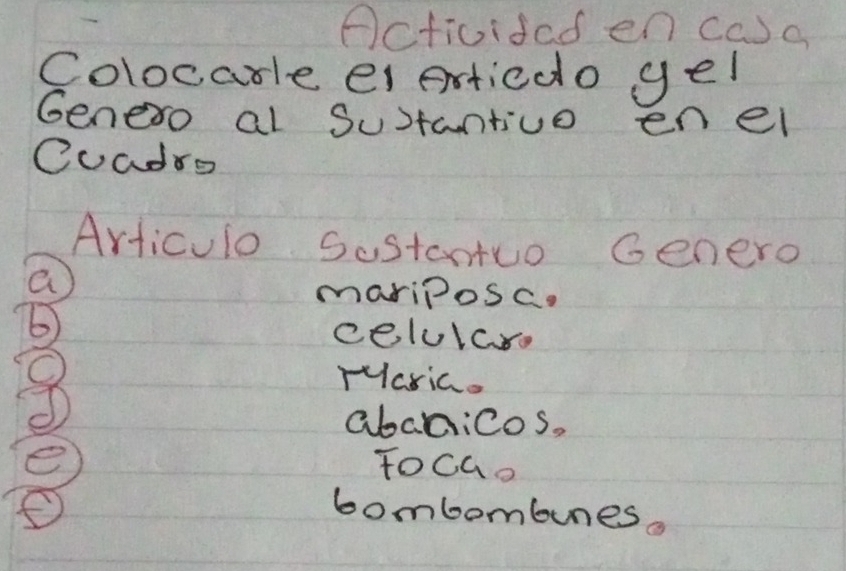 Actividad en casa
Colocarle el Articulo y el
Genero al Sustantivo en el
Cuadro
Articulo Sustantivo Genero
a mariposa.
b celular.
c Maria.
d abanicos.
e Foca.
f bombombunes.